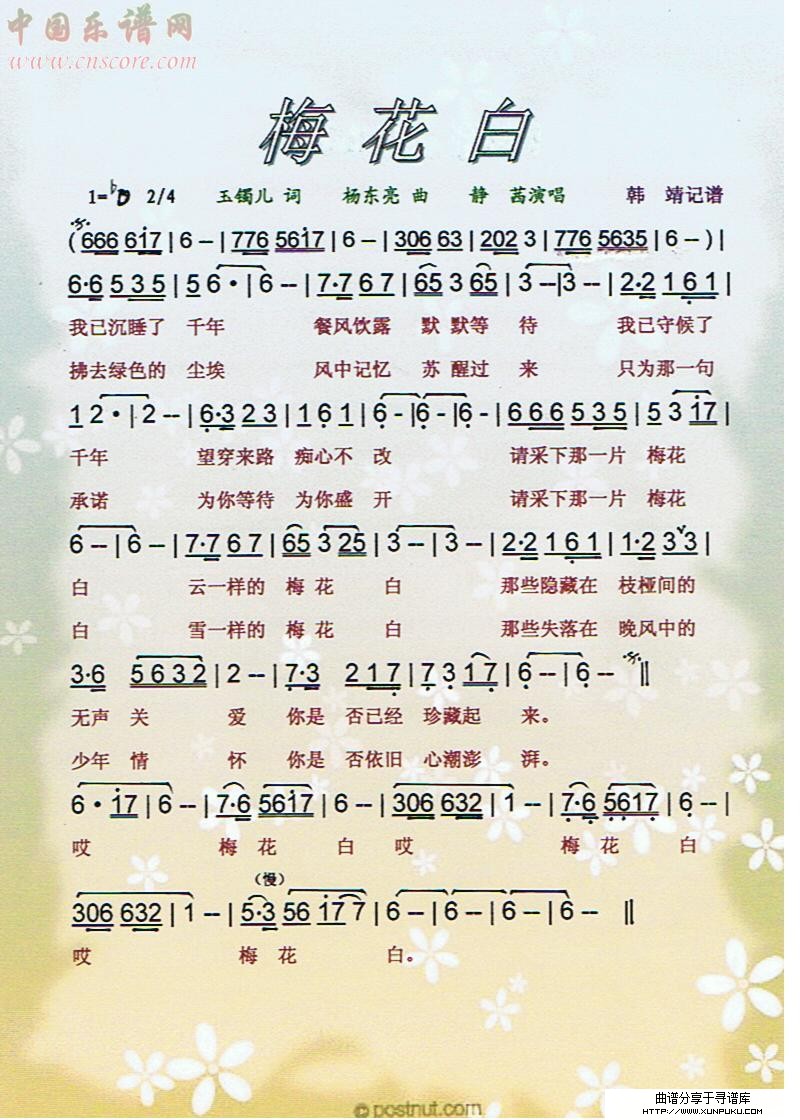 中国乐谱网
www.cnscore.com
梅花白
1=♭D 2/4 玉镯儿 词 杨东亮 曲 静 茜演唱 韩 靖记谱
( 666 617 | 6 – | 776 5617 | 6 – | 306 63 | 202 3 | 776 5635 | 6 – – ) |
6·6 5 3 5 | 5 6 · | 6 – – | 7·7 6 7 | 65 3 65 | 3 – –|3 – – | 2·2 1 6 1 |
我已沉睡了 千年 餐风饮露 默 默等 待 我已守候了
拂去绿色的 尘埃 风中记忆 苏 醒过 来 只为那一句
1 2 · | 2 – – | 6·3 2 3 | 1 6 1 | 6 – |6 – |6 – – | 6 6 6 5 3 5 | 5 3 17 |
千年 望穿来路 痴心不 改 请采下那一片 梅花
承诺 为你等待 为你盛 开 请采下那一片 梅花
6 – – | 6 – – | 7·7 6 7 | 65 3 25 | 3 – –| 3 – – | 2·2 1 6 1 | 1·2 3 3 |
白 云一样的 梅 花 白 那些隐藏在 枝桠间的
白 雪一样的 梅 花 白 那些失落在 晚风中的
3·6 5 6 3 2 | 2 – – | 7·3 2 1 7 | 7 3 17 | 6 – –| 6 – – ‖
无声 关 爱 你是 否已经 珍藏起 来。
少年 情 怀 你是 否依旧 心潮澎 湃。
6 · 17 | 6 – – | 7·6 5617 | 6 – – | 306 632 | 1 – – | 7·6 5617 | 6 – – |
哎 梅 花 白 哎 梅 花 白
(慢)
306 632 | 1 – – | 5·3 56 17 7 | 6 – – | 6 – – | 6 – – |6 – – ‖
哎 梅 花 白。
© postnut.com
曲谱分享于寻谱库
HTTP://WWW.XUNPUKU.COM